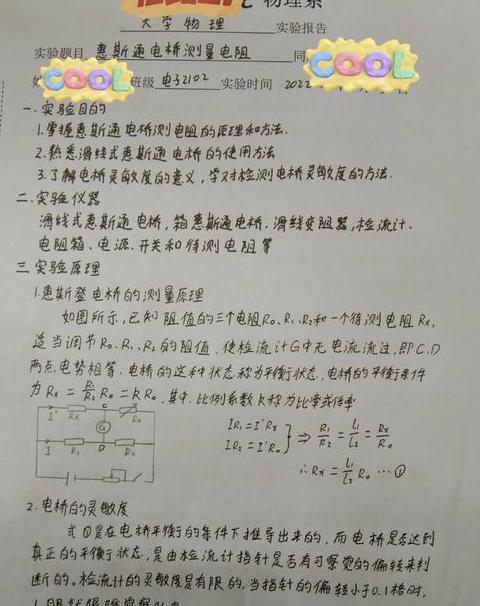 物理系
大学物理 实验报告
实验题目 惠斯通电桥测量电阻 同
COOL
COOL 班级 电子2102 实验时间 2022
一.实验目的
1.掌握惠斯通电桥测电阻的原理和方法.
2.熟悉滑线式惠斯通电桥的使用方法
3.了解电桥灵敏度的意义,学习检测电桥灵敏度的方法.
二.实验仪器
滑线式惠斯通电桥,箱惠斯通电桥.滑线变阻器,检流计.
电阻箱、电源.开关和待测电阻等
三.实验原理
1.惠斯登电桥的测量原理
如图所示,已知阻值的三个电阻R₀、R₁、R₂和一个待测电阻Rx,
适当调节R₀、R₁、R₂的阻值,使检流计G中无电流流过,即C.D
两点电势相等,电桥的这种状态称为平衡状态.电桥的平衡条件
为Rx = R₁/R₂ R₀ = kR₀.其中.比例系数k称为比率或倍率
C
I' Rx R₀
G
I R₁ D R₂
IR₁=I'Rx
IR₂=I'R₀ } ⇒ R₁/R₂ = l₁/l₂ = Rx/R₀
∴Rx = l₁/l₂ R₀ …①
2.电桥的灵敏度
式①是在电桥平衡的条件下推导出来的,而电桥是否达到
真正的平衡状态,是由检流计指针是否有可察觉的偏转来判
断的。检流计的灵敏度是有限的,当指针的偏转小于0.1格时,